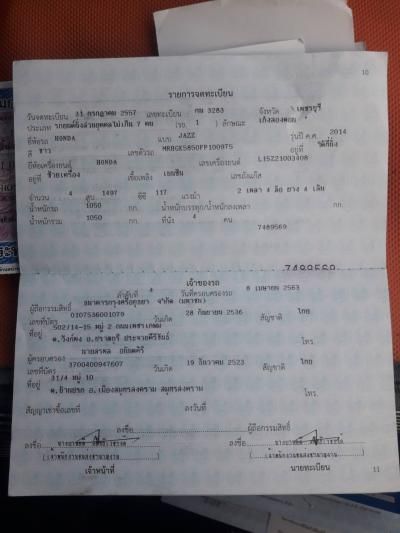 10
รายการจดทะเบียน
วันจดทะเบียน 31 กรกฎาคม 2557 เลขทะเบียน กม 3283 จังหวัด เพชรบุรี
ประเภท รถยนต์นั่งส่วนบุคคลไม่เกิน 7 คน (รย. 1 ) ลักษณะ เก๋งสองตอน
ยี่ห้อรถ HONDA แบบ JAZZ รุ่นปี ค.ศ. 2014
สี ขาว เลขตัวรถ MRHGK5850FP100975 อยู่ที่
ยี่ห้อเครื่องยนต์ HONDA เลขเครื่องยนต์ L15Z21003408
อยู่ที่ ซ้ายเครื่อง เชื้อเพลิง เบนซิน เลขถังแก๊ส
จำนวน 4 สูบ 1497 ซีซี 117 แรงม้า 2 เพลา 4 ล้อ ยาง 4 เส้น
น้ำหนักรถ 1050 กก. น้ำหนักบรรทุก/น้ำหนักลงเพลา กก.
น้ำหนักรวม 1050 กก. ที่นั่ง 4 คน
7489569
7489569
เจ้าของรถ
ลำดับที่ วันที่ครอบครองรถ 8 เมษายน 2563
ผู้ถือกรรมสิทธิ์ ธนาคารกรุงศรีอยุธยา จำกัด (มหาชน)
เลขที่บัตร 0107536001079 วันเกิด 28 กันยายน 2536 สัญชาติ ไทย
ที่อยู่ 502/14-15 หมู่ 2 ถนนเพชรเกษม
ต.วังก์พง อ.ปราณบุรี ประจวบคีรีขันธ์ โทร.
ผู้ครอบครอง
เลขที่บัตร 3700400947607 วันเกิด 19 ธันวาคม 2523 สัญชาติ ไทย
ที่อยู่ 31/4 หมู่ 10
อ.เมืองสมุทรสงคราม สมุทรสงคราม โทร.
สัญญาเช่าซื้อเลขที่ ลงวันที่
ลงชื่อ ผู้ถือกรรมสิทธิ์
ลงชื่อ ลงชื่อ
เจ้าหน้าที่ นายทะเบียน
11